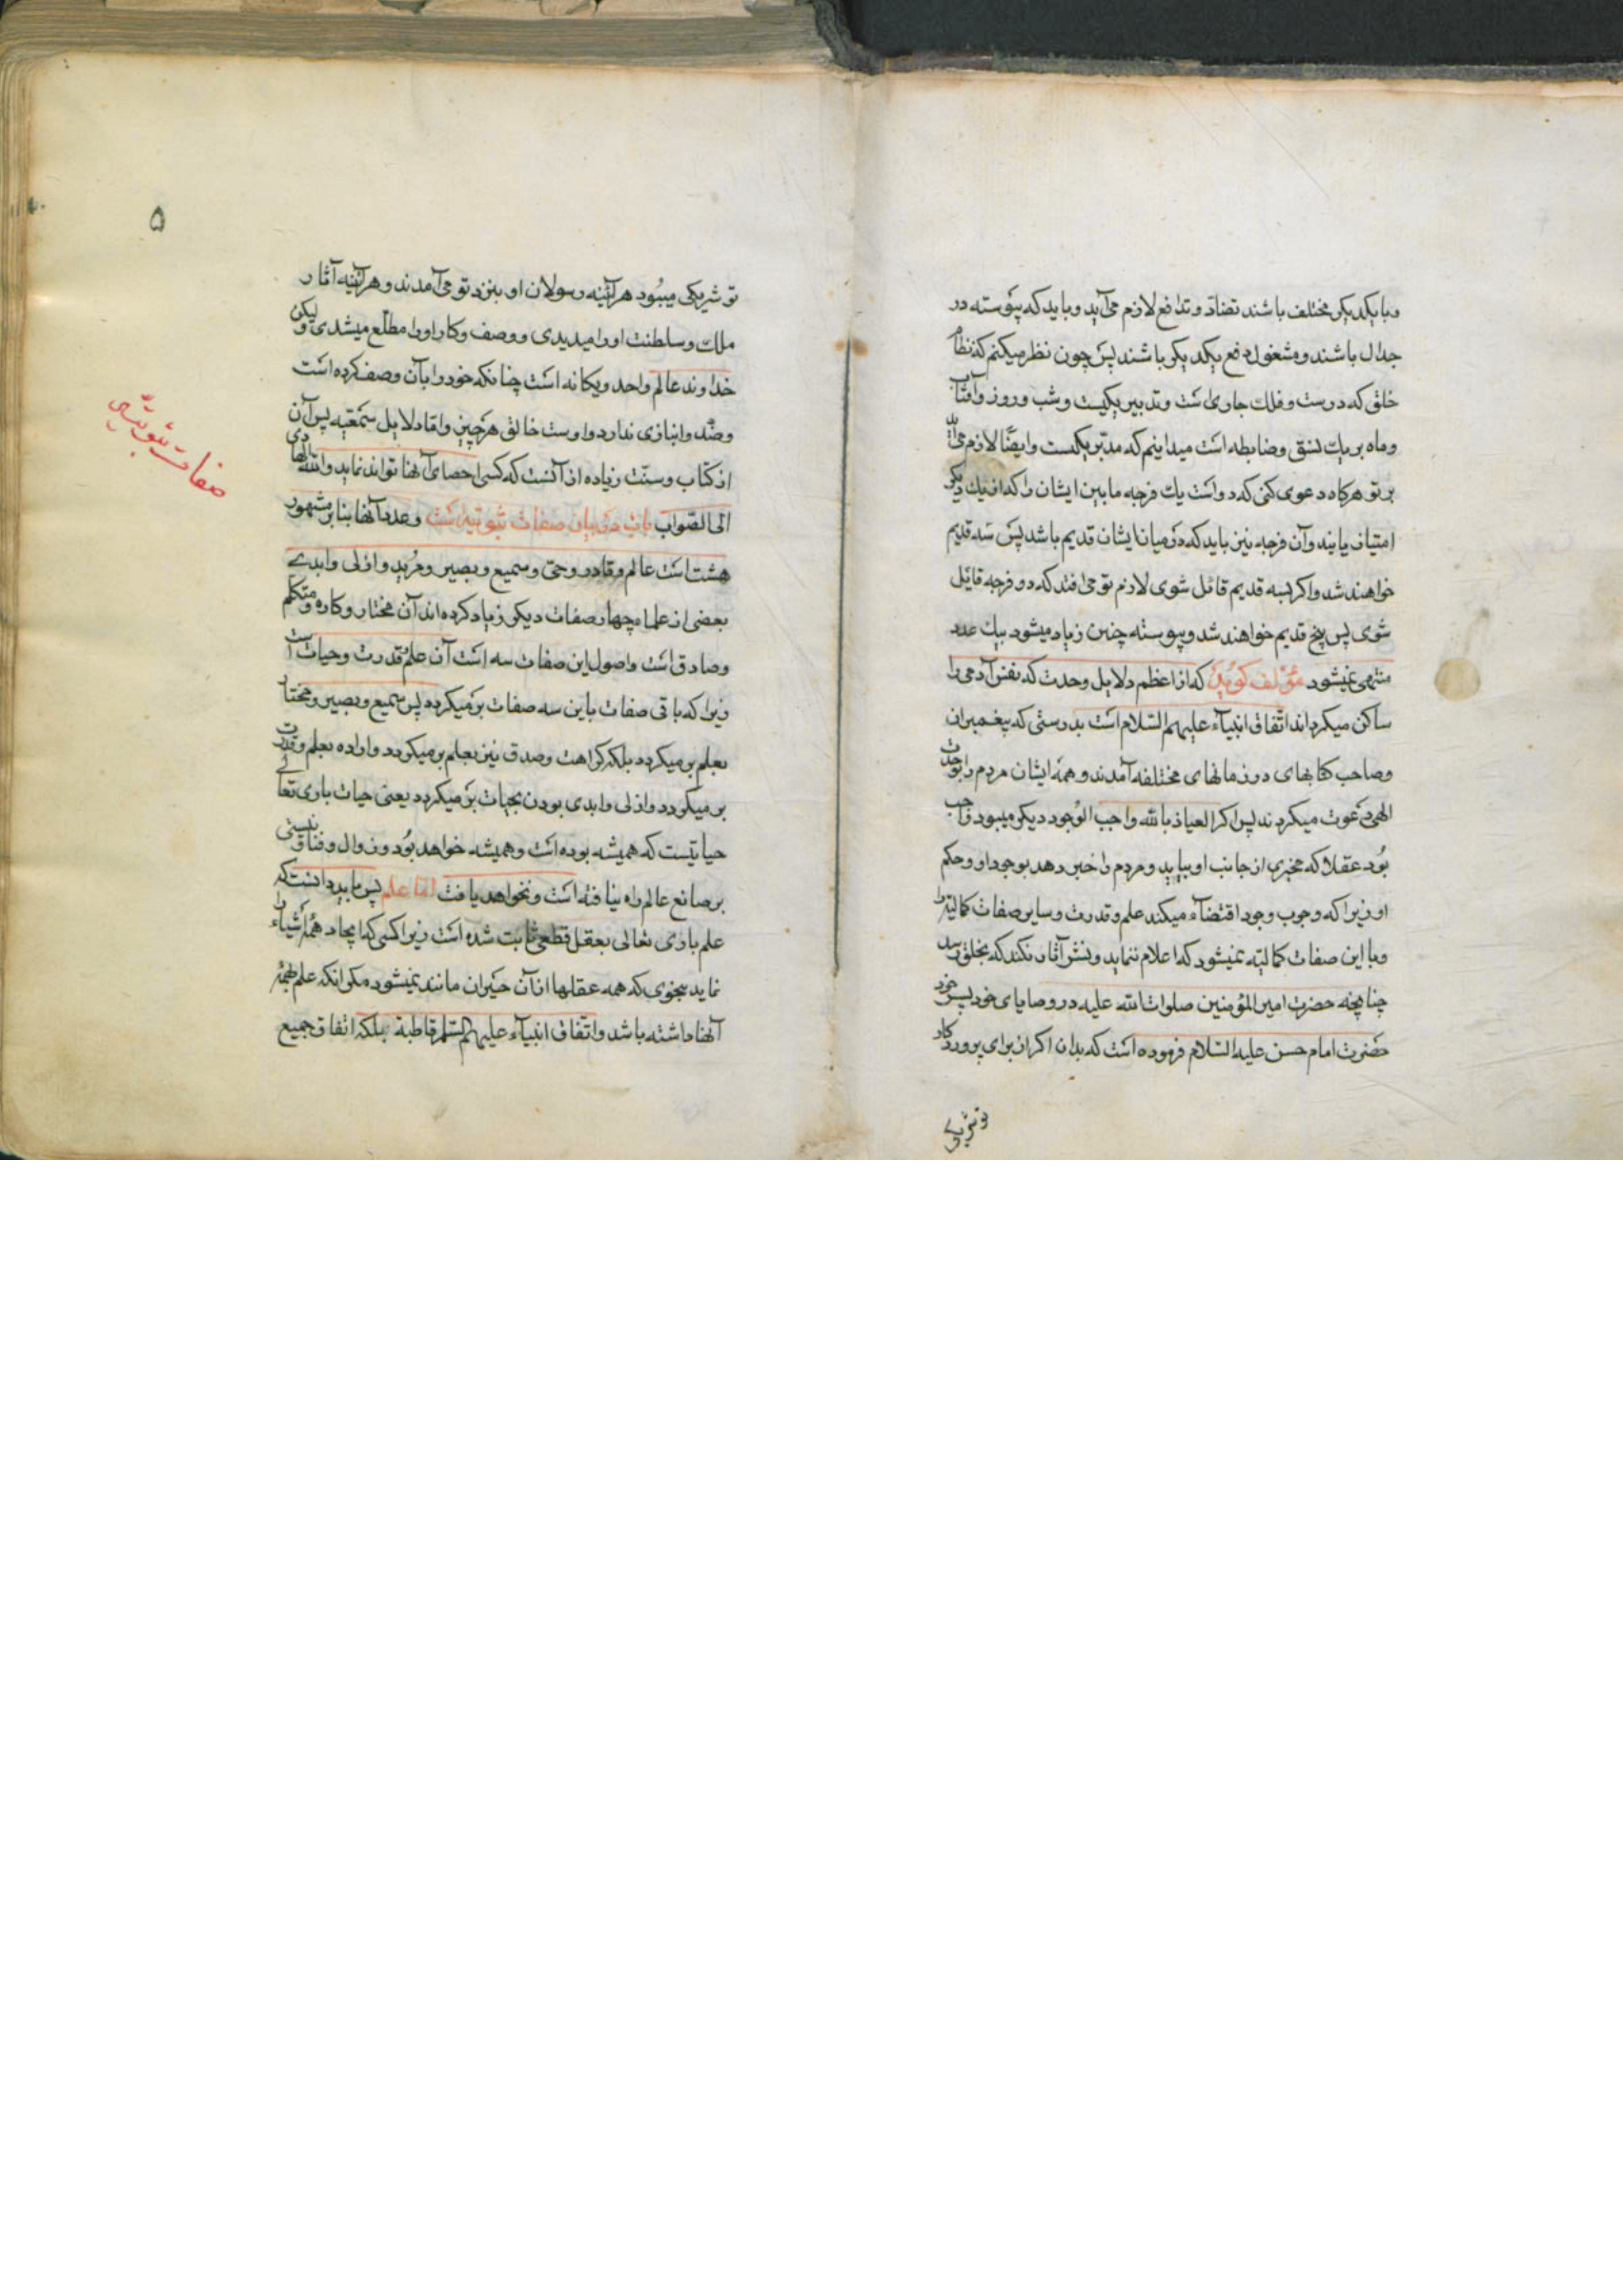 و با یکدیکر مختلف باشند تضادّ و تدافع لازم می‌آید و باید که پیوسته در
جدال باشند و مشغول دفع یکدیکر باشند پس چون نظر میکنم که نظام
خلق که درست و فلک جاری است و تدبیر یکیست و شب و روز و آفتاب
و ماه بر یک نسق و ضابطه است میدانیم که مدبّر یکیست و ایضًا لازم می‌آید
بر تو هرکاه دعوی کنی که دو است یک فرجه مابین ایشان را که از یک دیکر
امتیاز یابند و آن فرجه نیز باید که در میان ایشان قدیم باشد پس سه قدیم
خواهند شد و اکر بسه قدیم قائل شوی لازم تو می‌افتد که دو فرجه قائل
شوی پس پنج قدیم خواهند شد و پیوسته چنین زیاد میشود بیک عدد
منتهی نمیشود مؤلف کوید که از اعظم دلایل وحدت که نفس آدمی را
ساکن میکرداند اتّفاق انبیآء علیهم السّلام است بدرستی که پیغمبران
و صاحب کتابهای در زمانهای مختلفه آمدند و همه ایشان مردم را بوحدت
الهی دعوت میکردند پس اکر العیاذ بالله واجب الوجود دیکر میبود واجب
بود عقلا که مخبری از جانب او بیاید و مردم را خبر دهد بوجود او و حکم
او زیرا که وجوب وجود اقتضآء میکند علم و قدرت و سایر صفات کمالیّه را
و با این صفات کمالیّه نمیشود که اعلام ننماید و نشر آثار نکند که بخلق رسد
چنانچه حضرت امیر المؤمنین صلوات الله علیه در وصایای خود بپسر خود
حضرت امام حسن علیه السّلام فرموده است که بدان اکر از برای پروردکار
تو شریکی
۵
تو شریکی میبود هرآئینه رسولان او بنزد تو می‌آمدند و هرآئینه آثار
ملک و سلطنت او را میدیدی و وصف و کار او را مطّلع میشدی و لیکن
خداوند عالم واحد و یکانه است چنانکه خود را بآن وصف کرده است
و ضد و انبازی ندارد و اوست خالق هر چیز و امّا دلایل سمعیّه پس آن
از کتاب و سنّت زیاده از آنست که کسی احصای آنها تواند نماید و الله الهادی
الی الصّواب باب در بیان صفات ثبوتیه است و عدد آنها بنا بر مشهور
هشت است عالم و قادر و حیّ و سمیع و بصیر و مرید و ازلی و ابدی
بعضی از علماء چهار صفات دیکر زیاد کرده‌اند آن مختار و کاره و متکلّم
و صادق است و اصول این صفات سه است آن علم قدرت و حیات است
زیرا که باقی صفات باین سه صفات بر میکردد پس سمیع و بصیر و مختار
بعلم بر میکردد بلکه کراهت و صدق نیز بعلم بر میکردد و اراده بعلم و قدرت
بر میکردد و ازلی و ابدی بودن بحیات بر میکردد یعنی حیات باری تعالی
حیاتیست که همیشه بوده است و همیشه خواهد بود و زوال و فنا و نیستی
بر صانع عالم راه نیافته است و نخواهد یافت امّا علم پس باید دانست که
علم باری تعالی بعقل قطعی ثابت شده است زیرا کسی که ایجاد همه اشیاء را
نماید بنحوی که همه عقلها از آن حیران مانند نمیشود مکر آنکه علم بهمه
آنها داشته باشد و اتّفاق انبیآء علیهم السّلم قاطبة بلکه اتفاق جمیع
صفات ثبوتیّه